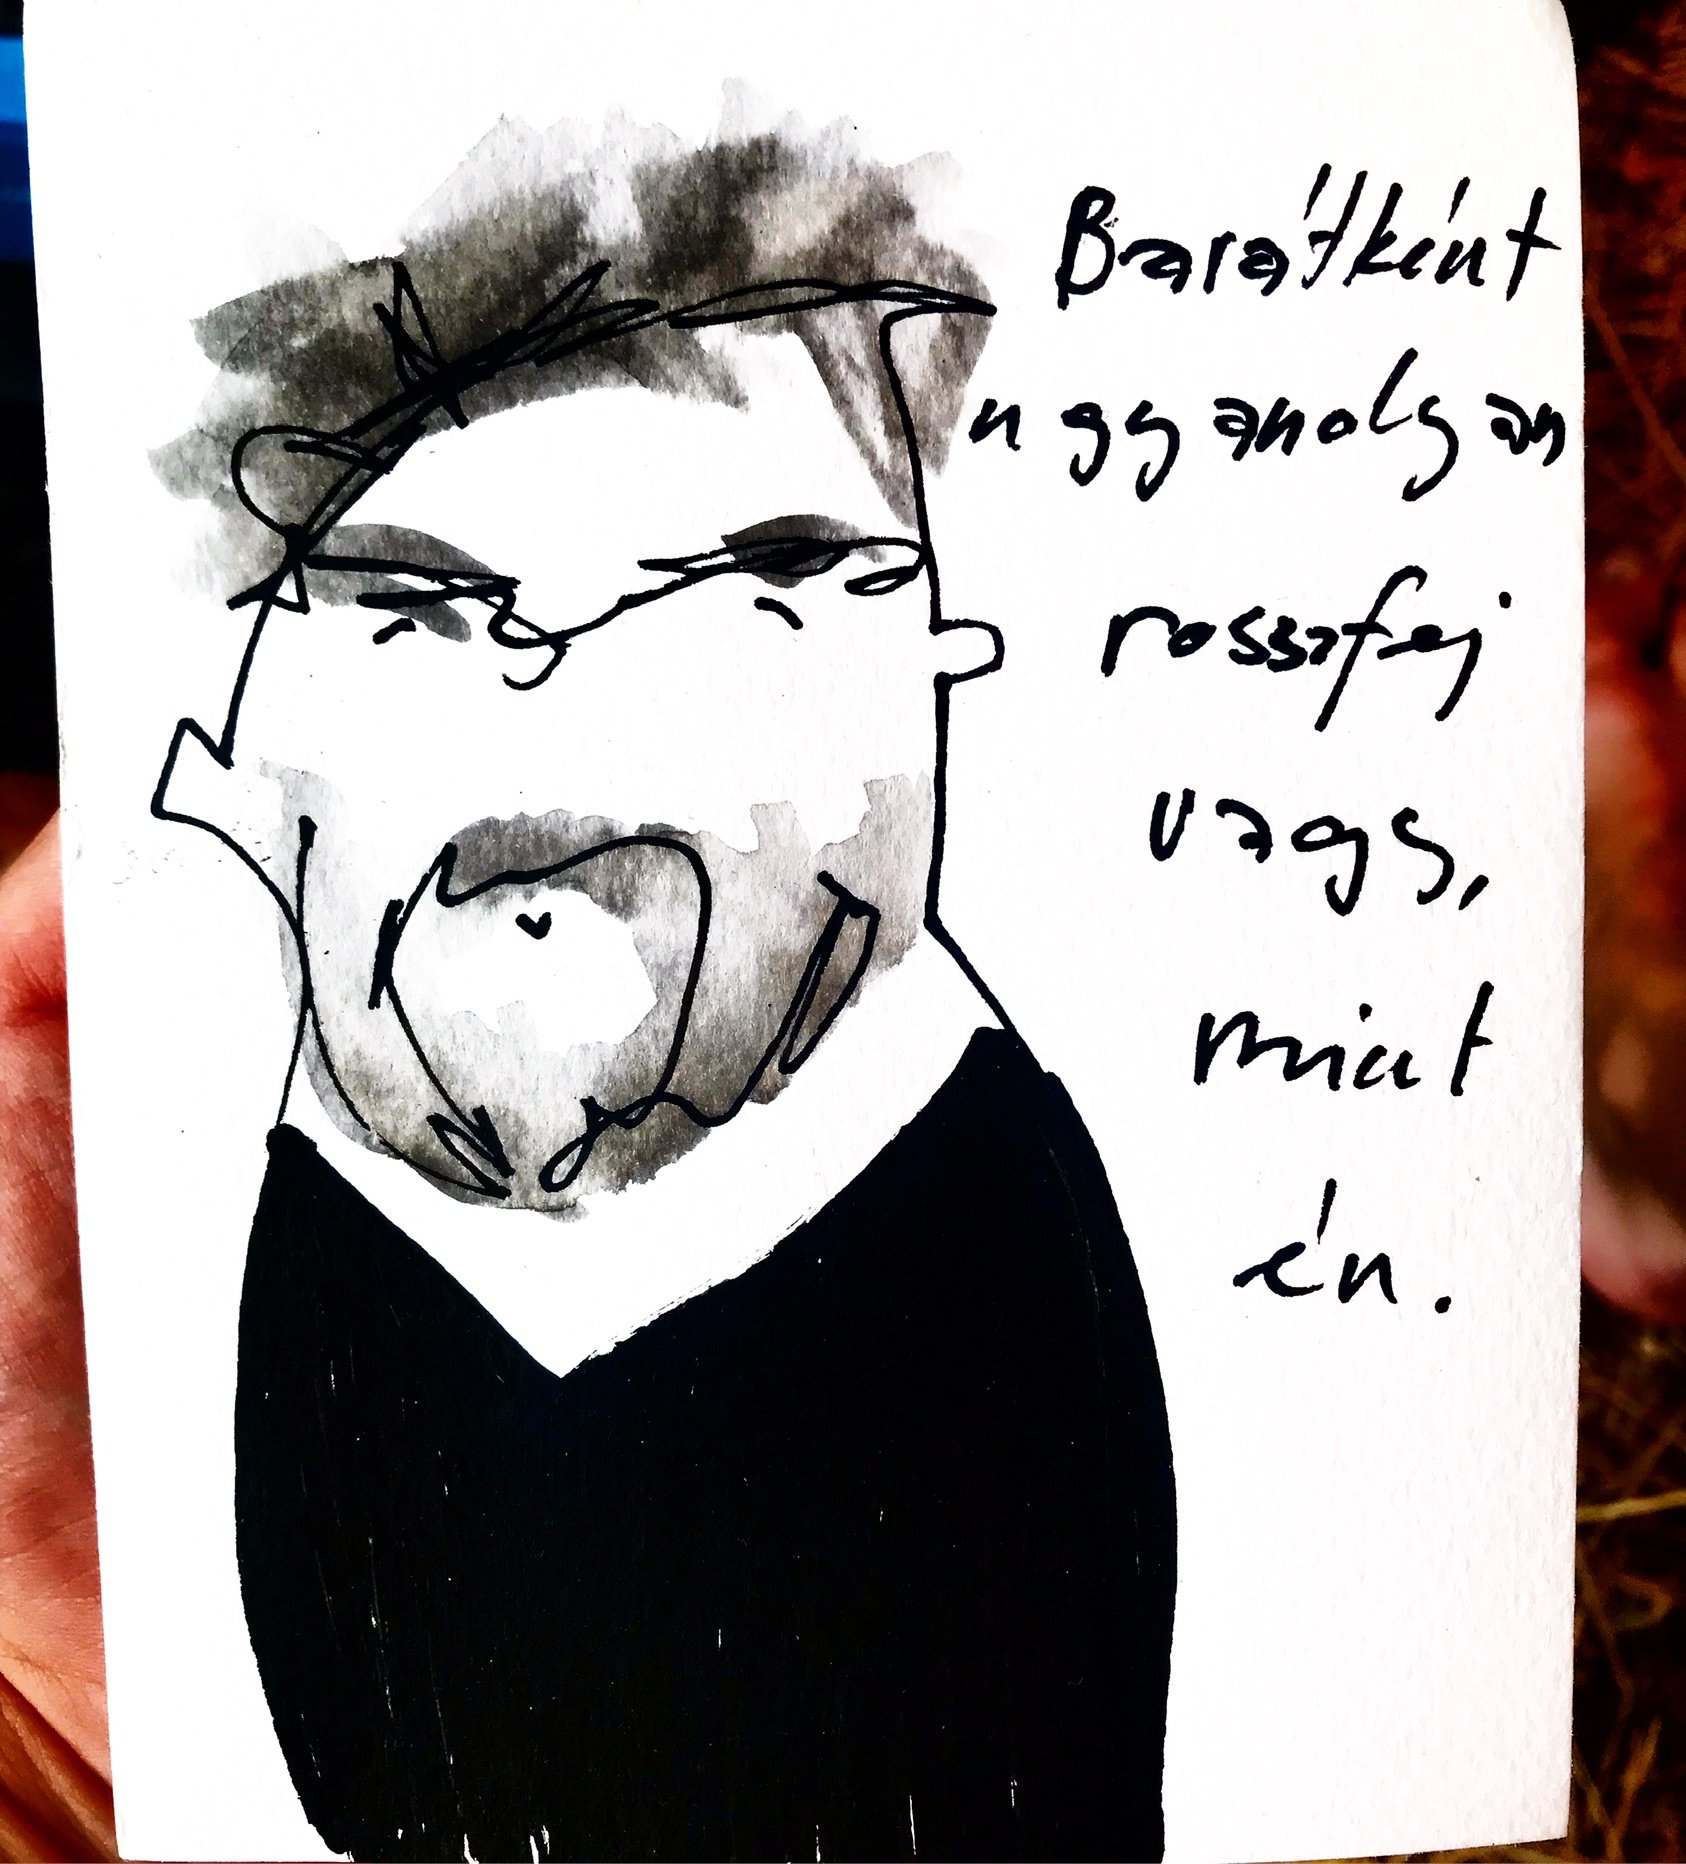 Barátként
ugyanolyan
rosszfej
vagy,
mint
én.